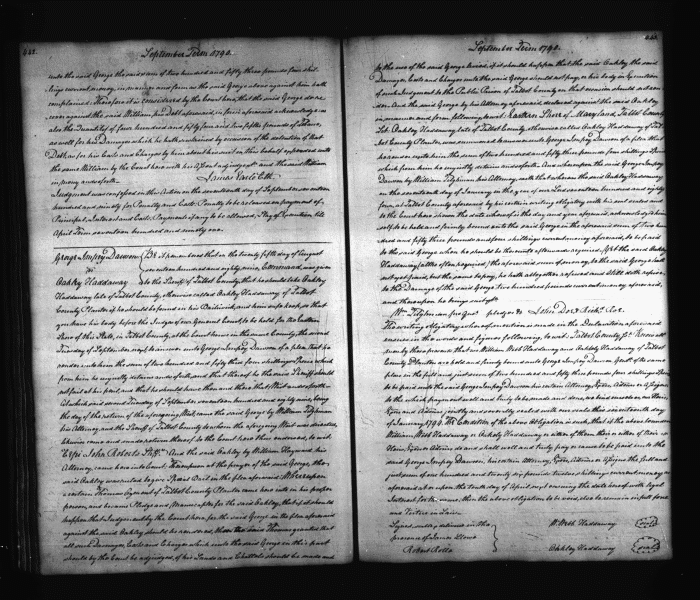 442
September Term 1790.
unto the said George the said sum of two hundred and fifty three pounds four shil
lings current money, in manner and form as the said George above against him hath
complained. Therefore it is considered by the Court here, that the said George do re
cover against the said William his Debt aforesaid, in form aforesaid acknowledged as
also the Quantity of four hundred and fifty four and two fifths pounds of Tobacco,
as well for his Damages which he hath sustained by reason of the detention of that
Debt as for his Costs and Charges by him about his suit in this behalf expended unto
the same William by the Court here with his assent adjudged and the said William
in mercy and so forth.
James Earle Clk.
Judgment was confessed in this Action on the seventeenth day of September seventeen
hundred and ninety for Penalty and Costs. Penalty to be released on payment of
Principal, Interest and Costs. Payments if any to be allowed, Stay of Execution till
April Term seventeen hundred and ninety one.
George Impey Dawson
vs
Oakley Haddaway
Be it remembered that on the twenty fifth day of August
seventeen hundred and eighty nine, Command was given
to the Sheriff of Talbot County, that he should take Oakley
Haddaway late of Talbot County, otherwise called Oakley Haddaway of Talbot
County Planter, if he should be found in his Bailiwick, and him safe keep, so that
you have his body before the Judges of our General Court to be held for the Eastern
Shore of this State, in Talbot County, at the Court house in the same County, the second
Tuesday of September next to answer unto George Impey Dawson of a plea, that he
render unto him the sum of two hundred and fifty three pounds four shillings Specie which
from him he unjustly detained and so forth, and that thereof he the said Sheriff should
not fail at his peril, and that he should have then and there that Writ and so forth.
At which said second Tuesday of September seventeen hundred and eighty nine, being
the day of the return of the aforegoing Writ, came the said George by William Tilghman
his Attorney, and the Sheriff of Talbot County to whom the aforegoing Writ was directed,
likewise came and made return thereof to the Court here thus endorsed, to wit:
"Cepi John Roberts Shff." And the said Oakley by William Hayward, his
Attorney, came here into Court. Whereupon at the prayer of the said George, the
said Oakley was ruled to give Special Bail in the plea aforesaid. Whereupon
a certain Thomas of Talbot County Planter came here into Court in his proper
person, and became Pledge and Manucaptor for the said Oakley, that if it should
happen that Judgment by the Court here for the said George in the plea aforesaid
against the said Oakley should be rendered, then the said Thomas granted that
all such Damages, Costs and Charges which unto the said George in this part
should by the Court be adjudged, of his Lands and Chattels should be made and
September Term 1790.
443
to the use of the said George levied, if it should happen that the said Oakley the said
Damages, Costs and Charges unto the said George should not pay, or his body in Execution
of such Judgment to the Public Prison of Talbot County on that occasion should not ren
der. And the said George by his Attorney aforesaid, declared against the said Oakley
in manner and form following to wit: Eastern Shore of Maryland, Talbot County
Sct. Oakley Haddaway late of Talbot County, otherwise called Oakley Haddaway of Tal
bot County Planter, was summoned to answer unto George Impey Dawson of a plea that
he render unto him the sum of two hundred and fifty three pounds four shillings Specie
which from him he unjustly detains and so forth. And whereupon the said George Impey
Dawson by William Tilghman his Attorney, saith that whereas the said Oakley Haddaway
on the seventeenth day of January in the year of our Lord seventeen hundred and eighty
four, at Talbot County aforesaid by his certain writing obligatory with his seal sealed and
to the Court here shown the date whereof is the day and year aforesaid, acknowledged him
self to be held and firmly bound unto the said George in the aforesaid sum of two hun
dred and fifty three pounds and four shillings current money aforesaid, to be paid
to the said George when he should be thereunto afterwards required. Yet the said Oakley
Haddaway (altho' often required) the aforesaid sum of money, to the said George hath
not as yet paid, but the same to pay, he hath altogether refused and still doth refuse,
to the Damage of the said George two hundred pounds current money aforesaid,
and thereupon he brings suit &c.
Wm. Tilghman for Quer. pledges &c John Doe & Richd. Roe.
The writing obligatory whereof mention is made in the Declaration aforesaid
ensues in the words and figures following, to wit: Talbot County Ss. Know all
men by these presents that we William Webb Haddaway and Oakley Haddaway of Talbot
County Planters are held and firmly bound unto George Impey Dawson Gent. of the same
place in the full and just sum of two hundred and fifty three pounds four shillings Specie
to be paid unto the said George Impey Dawson his certain Attorney, Exors, Admrs or Assigns
to the which payment well and truly to be made and done, we bind ourselves our Heirs,
Exors and Admrs jointly and severally sealed with our seals this seventeenth day
of January 1784. The Condition of the above Obligation is such, that if the above bounden
William Webb Haddaway or Oakley Haddaway or either of them their or either of their
Heirs, Exors or Admrs do and shall well and truly pay or cause to be paid unto the
said George Impey Dawson, his certain Attorney, Exors, Admrs or Assigns the full and
just sum of one hundred and twenty six pounds twelve shillings current money as
aforesaid at or upon the tenth day of April next ensuing the date hereof with legal
Interest for the same, then the above obligation to be void, else to remain in full force
and Virtue in Law.
Signed sealed & delivered in the
presence of James Lloyd
Robert Rolle
Wm. Webb Haddaway (seal)
Oakley Haddaway (seal)